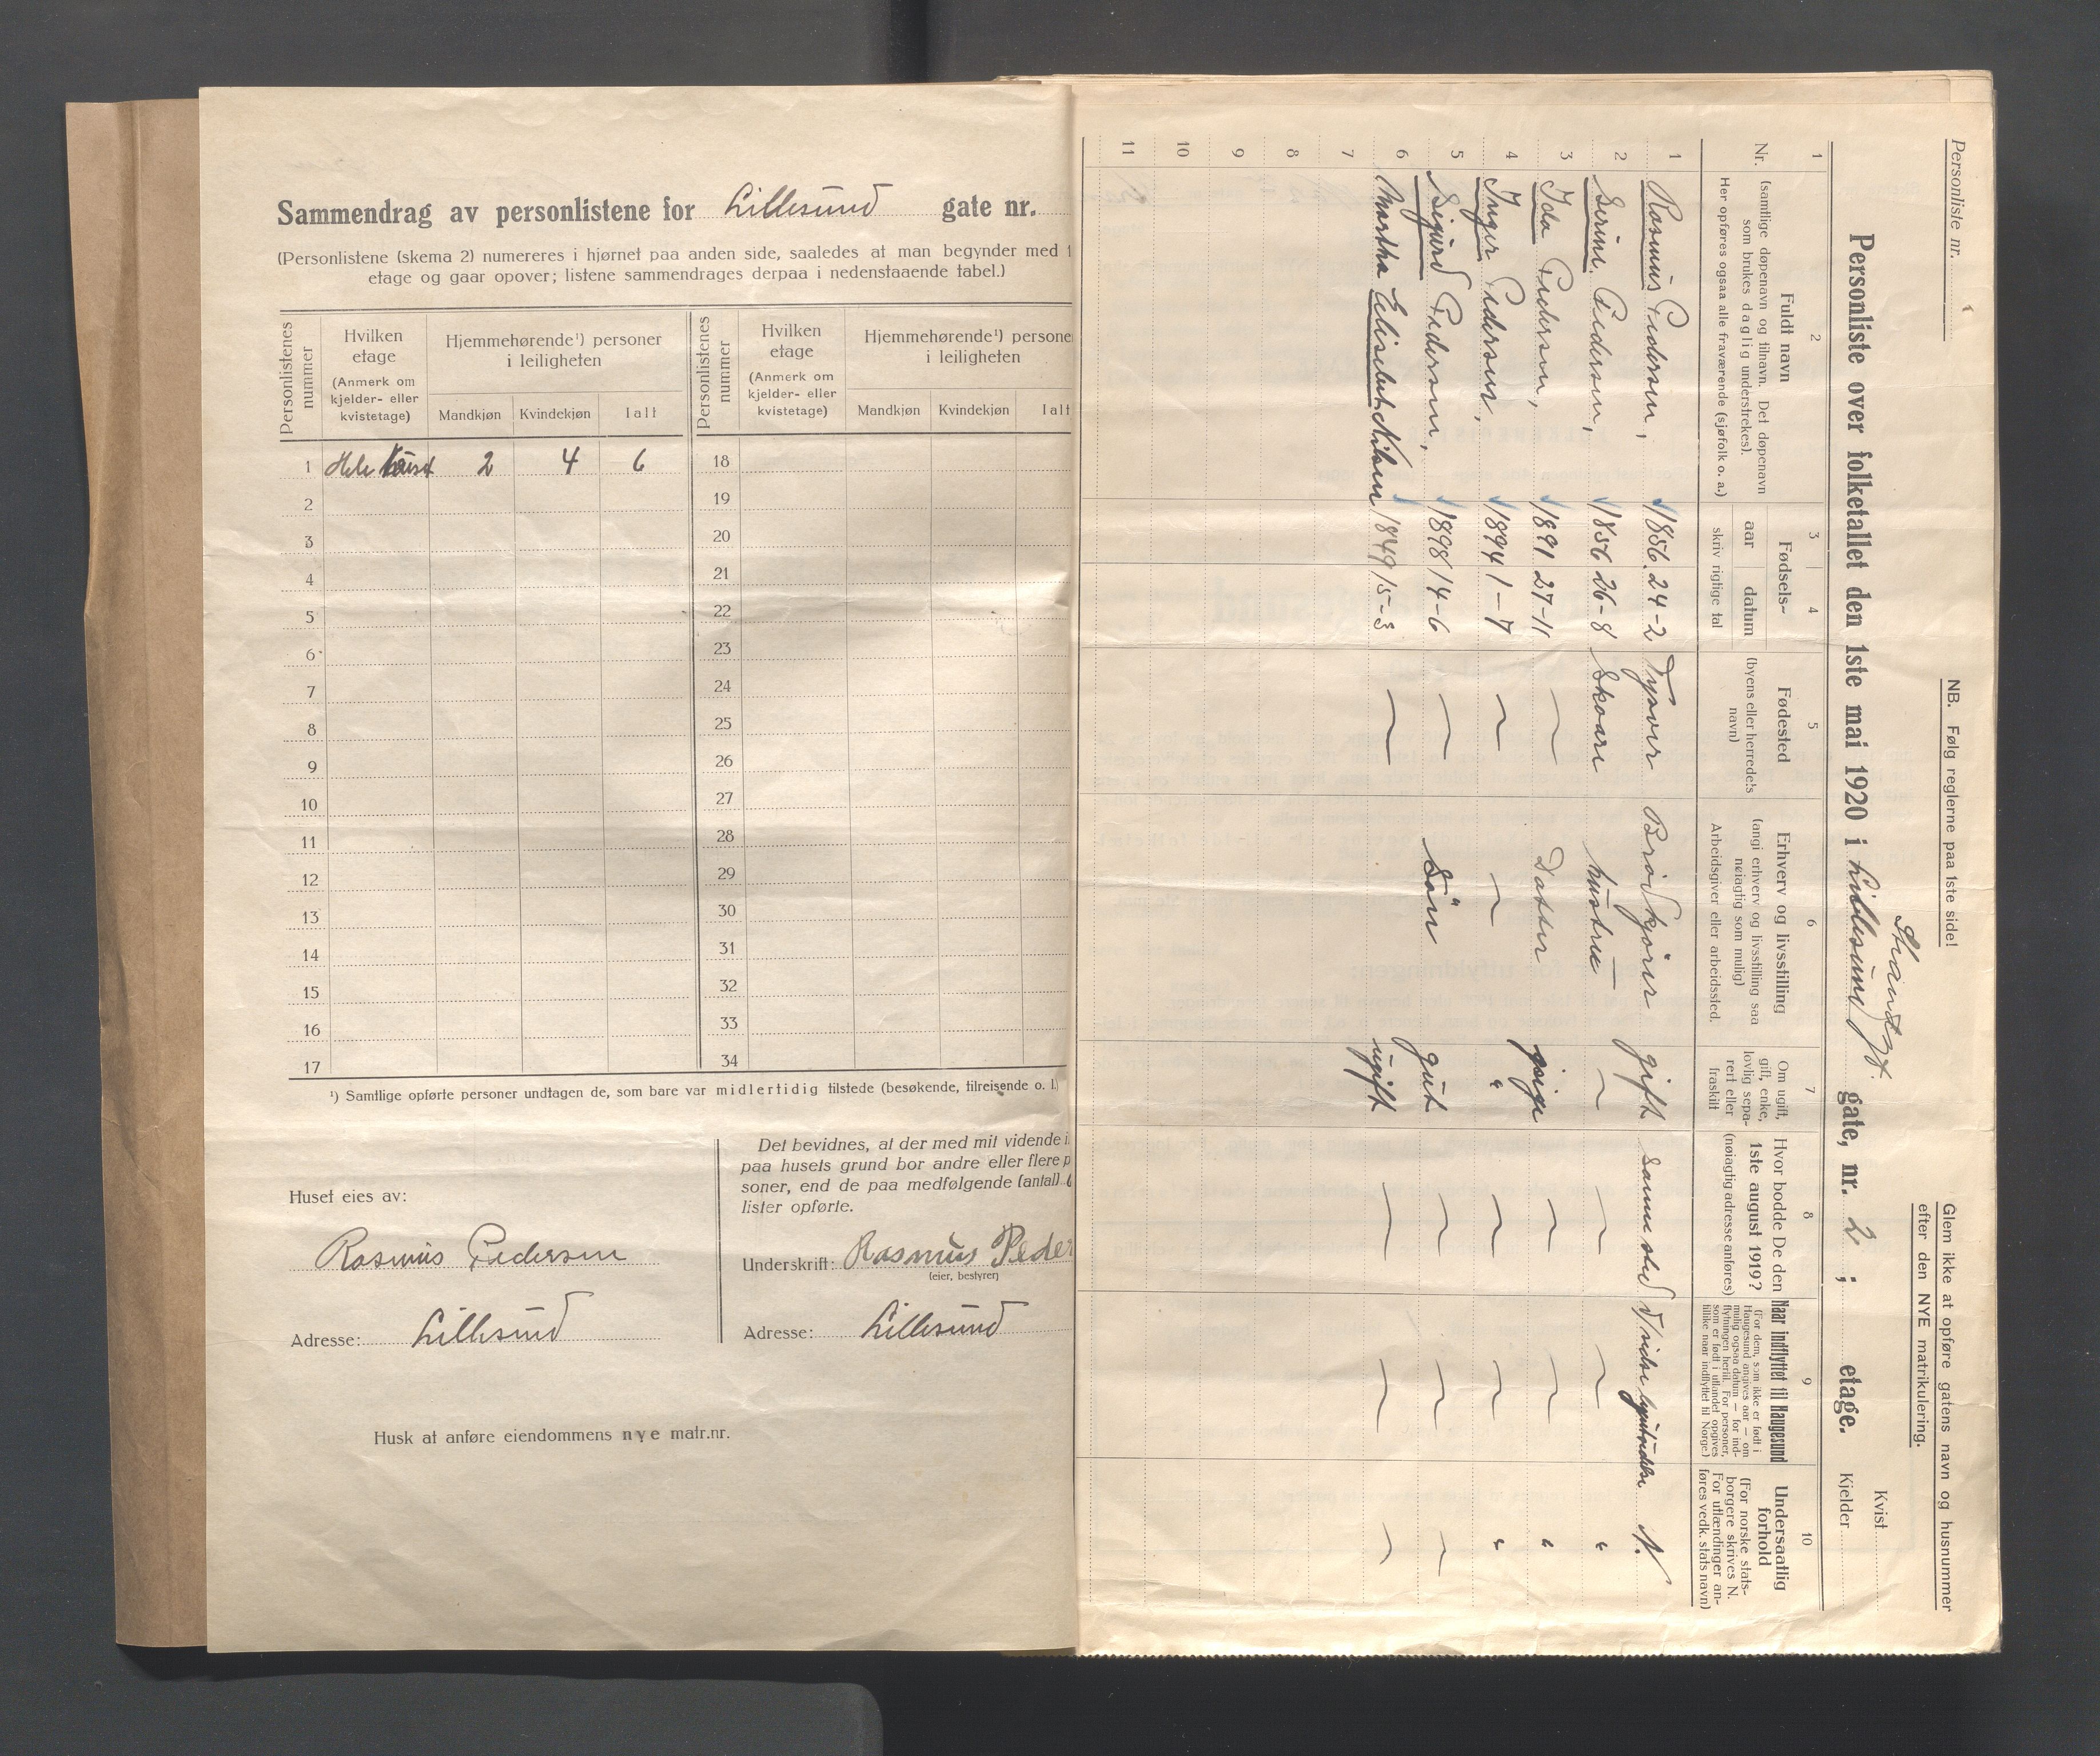 Sammendrag av personlistene for Lillesund gate nr.
(Personlistene (skema 2) numereres i hjørnet paa anden side, saaledes at man begynder med 1
etage og gaar opover; listene sammendrages derpaa i nedenstaaende tabel.)
Personlistenes nummer
Hvilken etage (Anmerk om kjelder- eller kvistetage)
Hjemmehørende¹) personer i leiligheten
Mandkjøn Kvindekjøn Ialt
Personlistenes nummer
Hvilken etage (Anmerk om kjelder- eller kvistetage)
Hjemmehørende¹) persone
i leiligheten
Mandkjøn Kvindekjøn Ialt
1 Hele huset 2 4 6 18
2 19
3 20
4 21
5 22
6 23
7 24
8 25
9 26
10 27
11 28
12 29
13 30
14 31
15 32
16 33
17 34
¹) Samtlige opførte personer undtagen de, som bare var midlertidig tilstede (besøkende, tilreisende o. l.)
Huset eies av:
Rasmus Pedersen
Adresse: Lillesund
Det bevidnes, at der med mit vidende i
paa husets grund bor andre eller flere p
soner, end de paa medfølgende (antal) 6
lister opførte.
Underskrift: Rasmus Peder
(eier, bestyrer)
Adresse: Lillesund
Husk at anføre eiendommens nye matr.nr.
Personliste nr.
NB. Følg reglerne paa 1ste side!
Glem ikke at opføre gatens navn og husnummer
efter den NYE matrikulering.
Strandgt.
Personliste over folketallet den 1ste mai 1920 i Lillesund gate, nr. 2 ; etage.
Kvist
Kjelder
1 2 3 4 5 6 7 8 9 10
Nr.
Fuldt navn
(samtlige døpenavn og tilnavn. Det døpenavn
som brukes daglig understrekes).
Her opføres ogsaa alle fraværende (sjøfolk o. a.)
Fødsels-
aar datum
skriv rigtige tal
Fødested
(byens eller herredets
navn)
Erhverv og livsstilling
(angi erhverv og livsstilling saa
nøiagtig som mulig)
Arbeidsgiver eller arbeidssted.
Om ugift,
gift, enke,
lovlig sepa-
rert eller
fraskilt
Hvor bodde De den
1ste august 1919?
(nøiagtig adresse anføres)
Naar indflyttet til Haugesund
(For dem, som ikke er født i
Haugesund angives aar — om
mulig ogsaa datum — for ind-
flytningen hertil. For personer,
som er født i utlandet opgives
tillike naar indflyttet til Norge.)
Undersaatlig
forhold
(For norske stats-
borgere skrives N.
For utlændinger an-
føres vedk. stats navn)
1 Rasmus Pedersen, 1856. 24-2 Tysvær Brødkjører gift Samme sted N.
2 Serine Pedersen, 1856 26-8 Skaare hustru — ~ ~ ~ "
3 Ida Pedersen, 1891 27-11 ~ Datter pige ~ ~ "
4 Inger Pedersen, 1894 1-7 ~ ~ " ~ ~ "
5 Sigurd Pedersen, 1898 14-6 ~ Søn gut ~ ~ ~
6 Martha Elisebet Nilsen 1849 15-3 ~ ugift ~ ~ ~
7
8
9
10
11